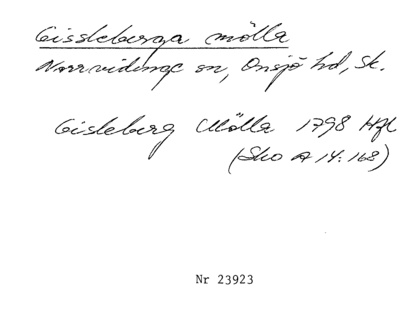 Gissleberga mölla
Norrvidinge sn, Onsjö hd, Sk.
Gisleberg Mölla 1798 Hfl
(Sko A 14:168)
Nr 23923